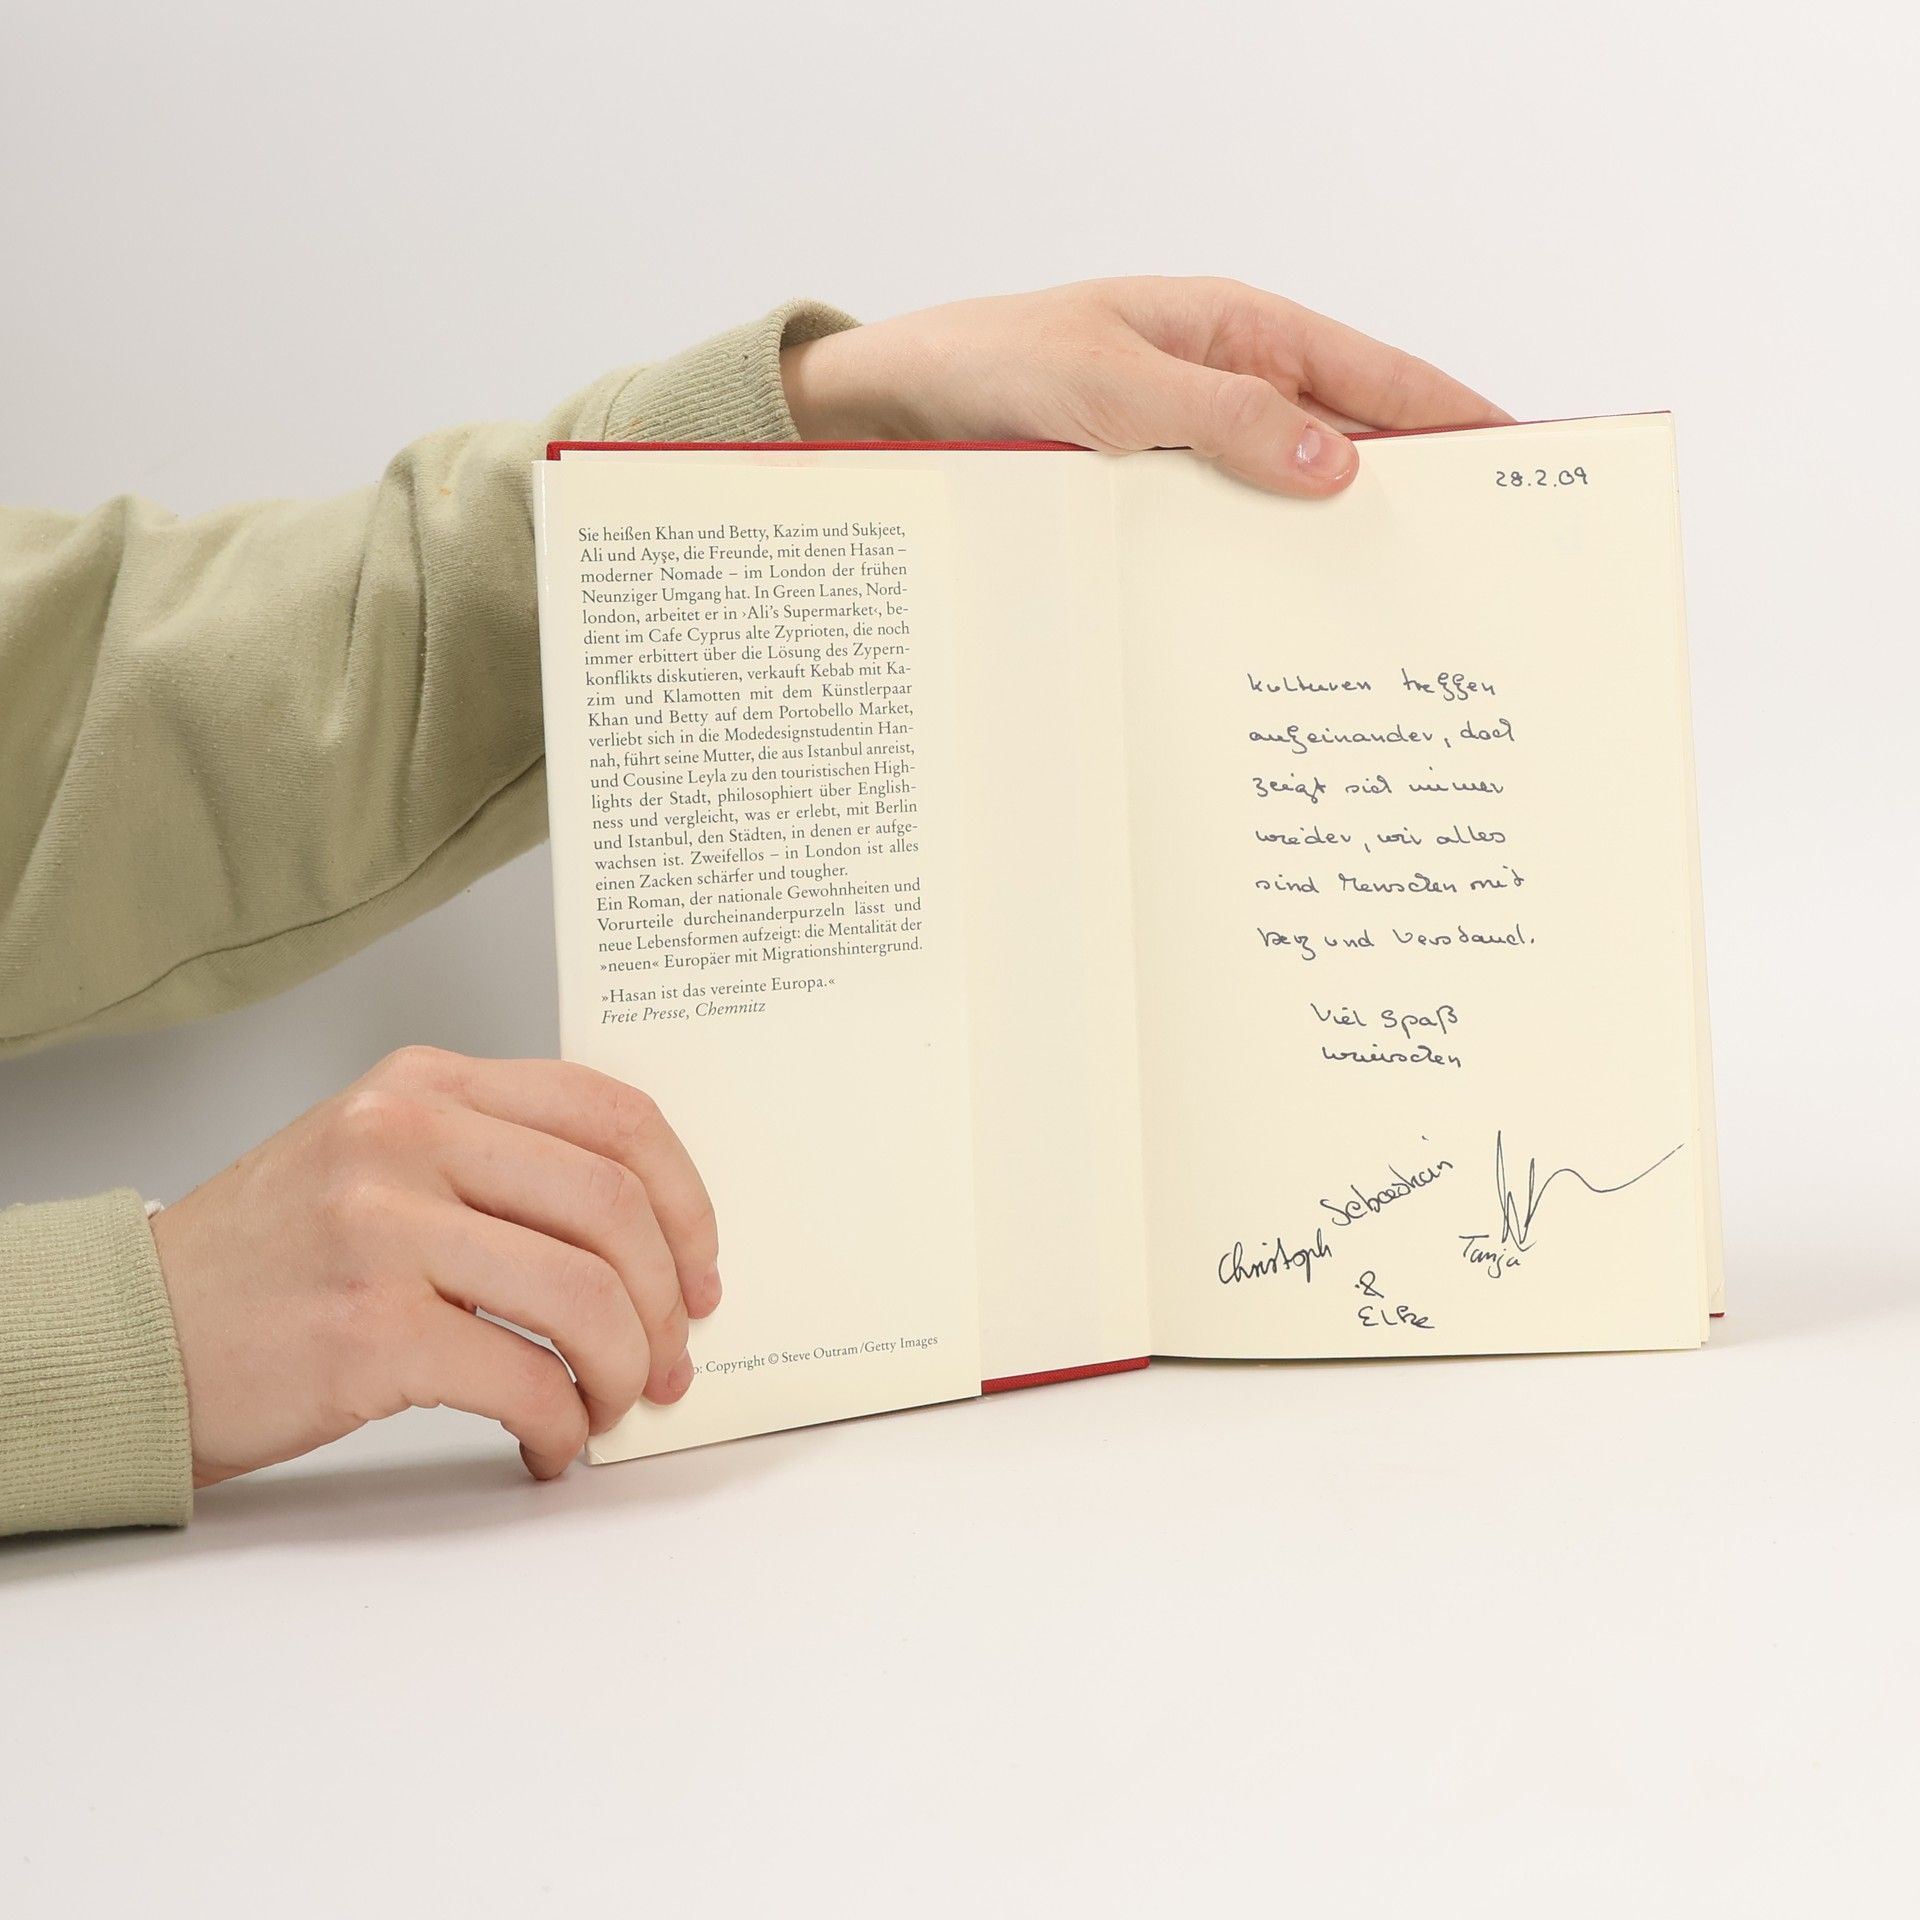 Sie heißen Khan und Betty, Kazim und Sukjeet,
Ali und Ayşe, die Freunde, mit denen Hasan –
moderner Nomade – im London der frühen
Neunziger Umgang hat. In Green Lanes, Nord-
london, arbeitet er in ›Ali's Supermarket‹, be-
dient im Cafe Cyprus alte Zyprioten, die noch
immer erbittert über die Lösung des Zypern-
konflikts diskutieren, verkauft Kebab mit Ka-
zim und Klamotten mit dem Künstlerpaar
Khan und Betty auf dem Portobello Market,
verliebt sich in die Modedesignstudentin Han-
nah, führt seine Mutter, die aus Istanbul anreist,
und Cousine Leyla zu den touristischen High-
lights der Stadt, philosophiert über English-
ness und vergleicht, was er erlebt, mit Berlin
und Istanbul, den Städten, in denen er aufge-
wachsen ist. Zweifellos – in London ist alles
einen Zacken schärfer und tougher.
Ein Roman, der nationale Gewohnheiten und
Vorurteile durcheinanderpurzeln lässt und
neue Lebensformen aufzeigt: die Mentalität der
»neuen« Europäer mit Migrationshintergrund.
»Hasan ist das vereinte Europa.«
Freie Presse, Chemnitz
o: Copyright © Steve Outram/Getty Images
28.2.09
Kulturen treffen
aufeinander, doch
zeigt sich immer
wieder, wir alles
sind Menschen mit
Herz und Verstand.
Viel Spaß
wünschen
Christoph Sebastian
Tanja
&
Elke